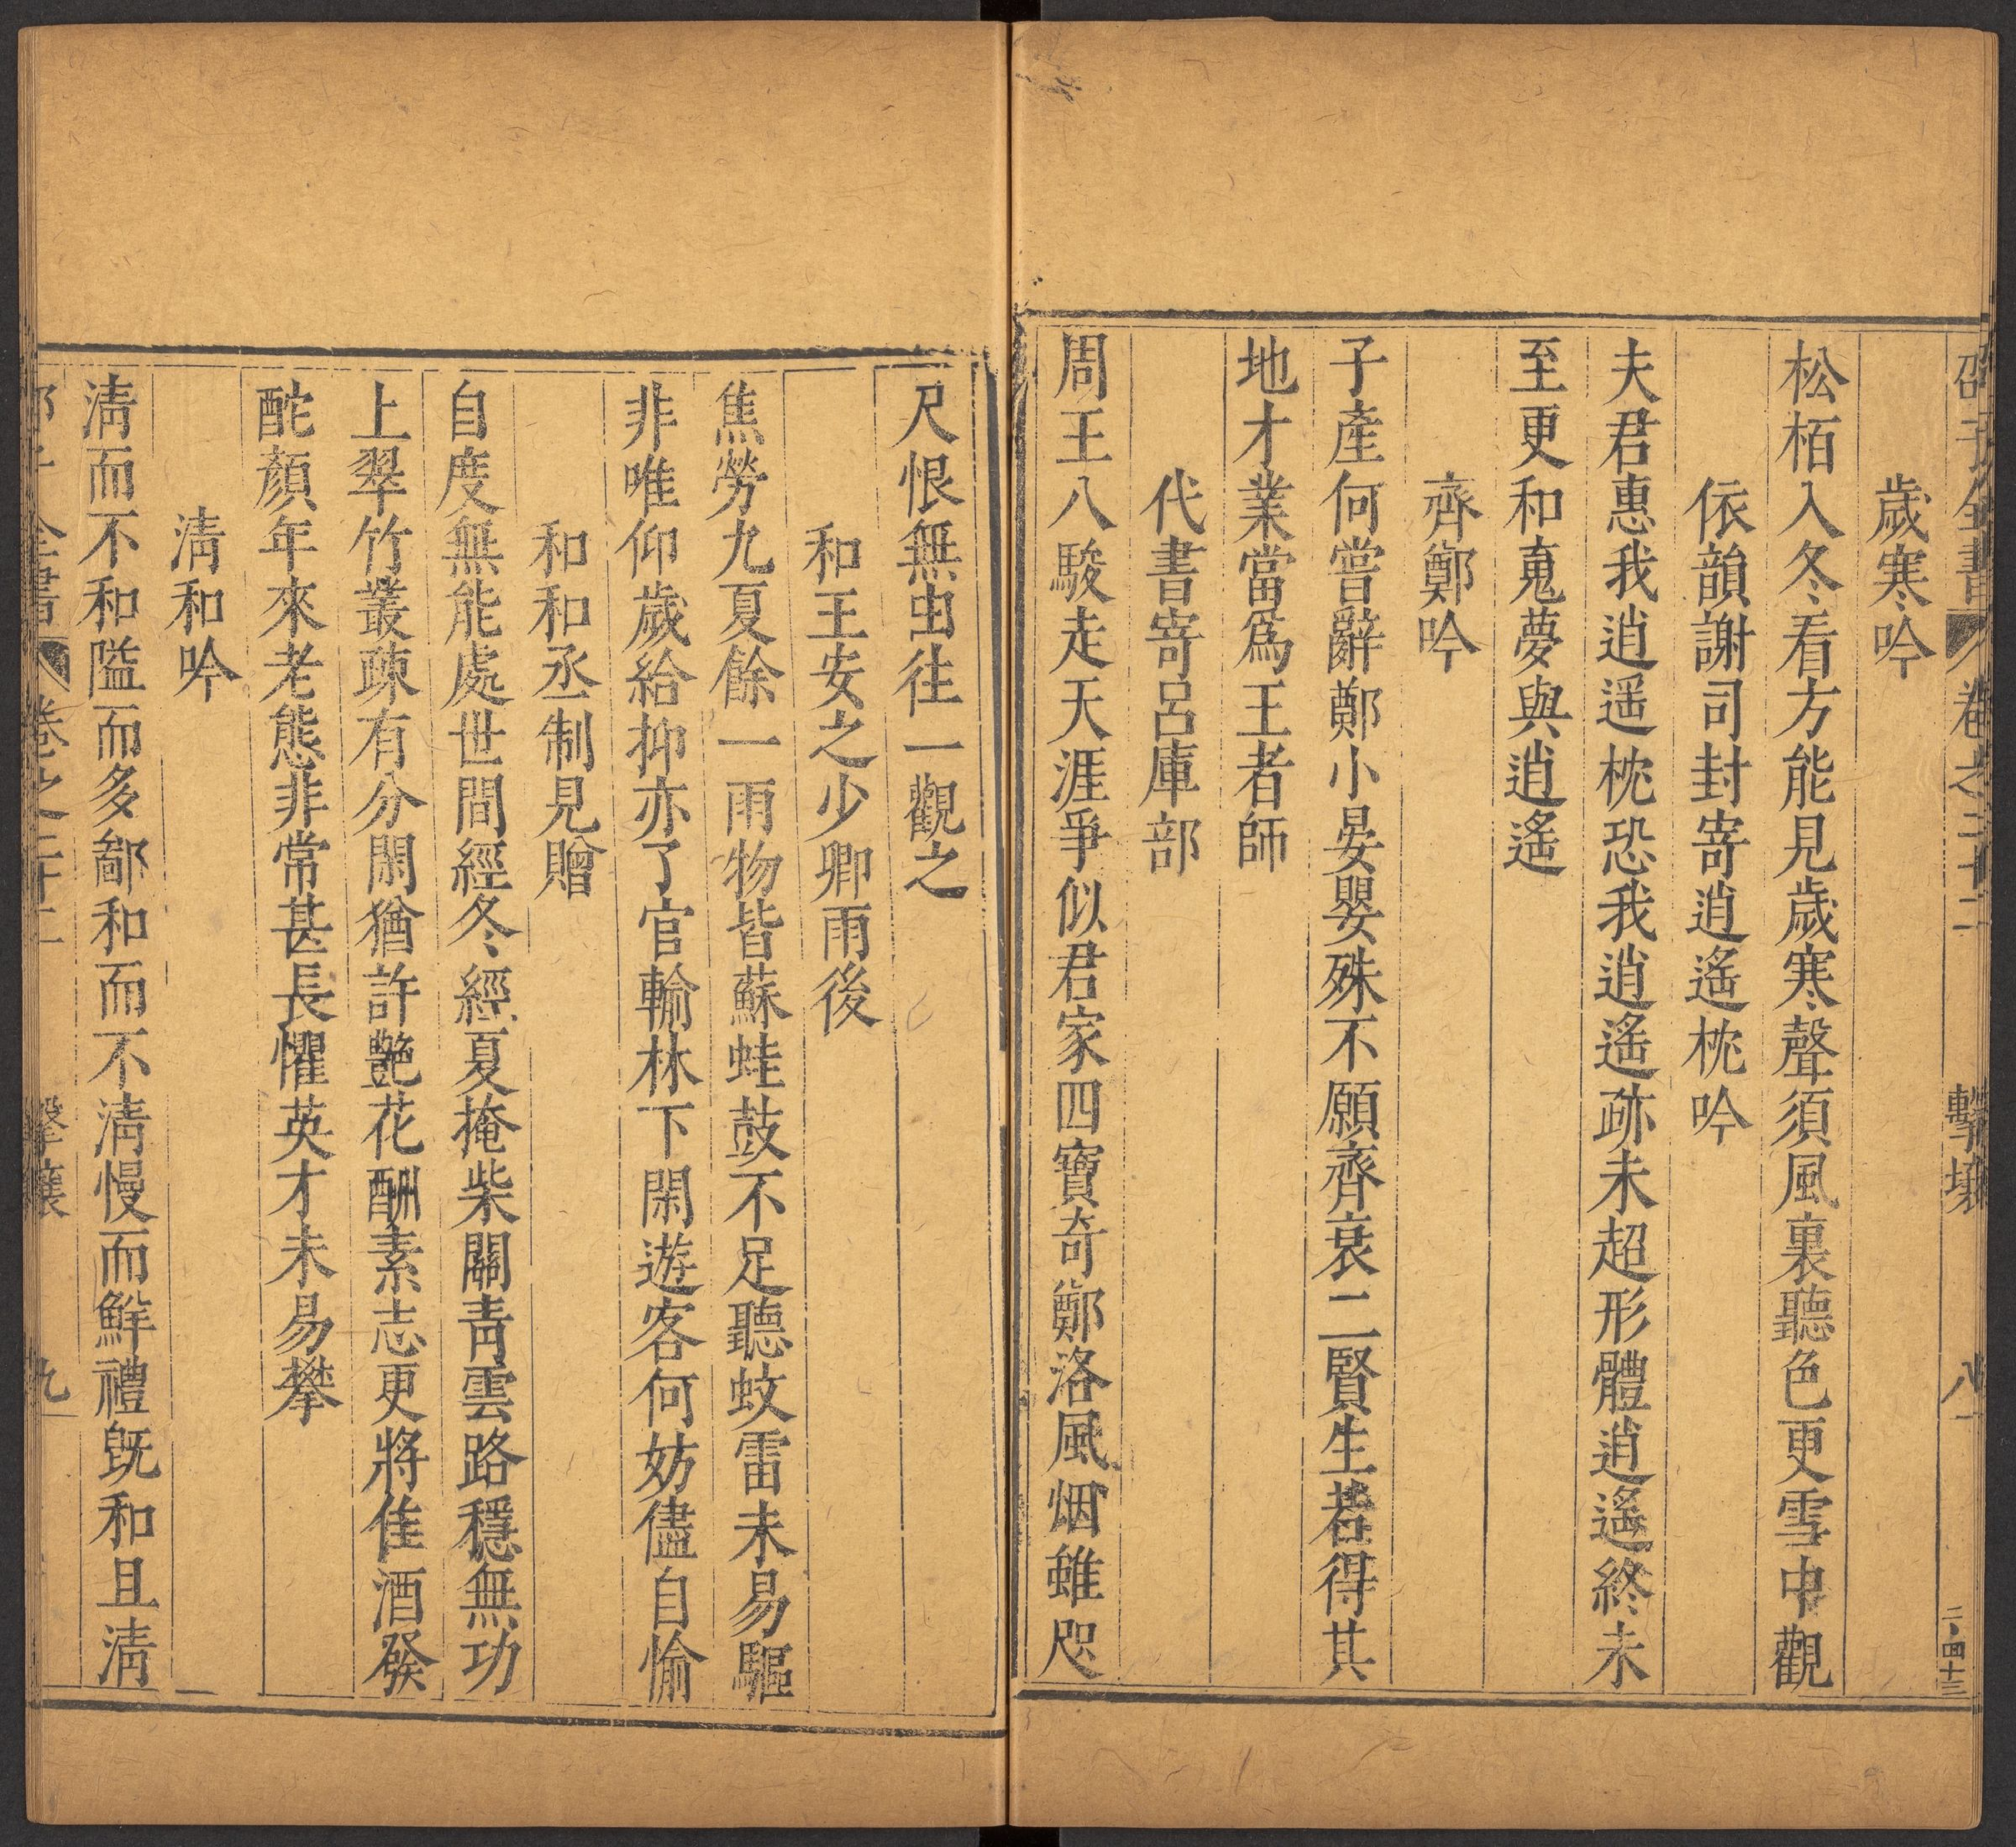 邵子全書 卷之二十二 擊壤 八 二・四十三
歲寒吟
松栢入冬看方能見歲寒聲須風裏聽色更雪中觀
依韻謝司封寄逍遙枕吟
夫君惠我逍遥枕恐我逍遙跡未超形體逍遙終未
至更和䰟夢與逍遙
齊鄭吟
子產何嘗辭鄭小晏嬰殊不願齊衰二賢生若得其
地才業當爲王者師
代書寄呂庫部
周王八駿走天涯爭似君家四寶奇鄭洛風烟雖咫
尺恨無由往一觀之
和王安之少卿雨後
焦勞九夏餘一雨物皆蘇蛙鼓不足聽蚊雷未易驅
非唯仰歲給抑亦了官輸林下閑遊客何妨儘自愉
和和丞制見贈
自度無能處世間經冬經夏掩柴關青雲路穩無功
上翠竹叢疎有分閑猶許艷花酬素志更將隹酒發
酡顏年來老態非常甚長懼英才未易攀
淸和吟
淸而不和隘而多鄙和而不淸慢而鮮禮旣和且淸
邵子全書 卷之二十二 擊壤 九